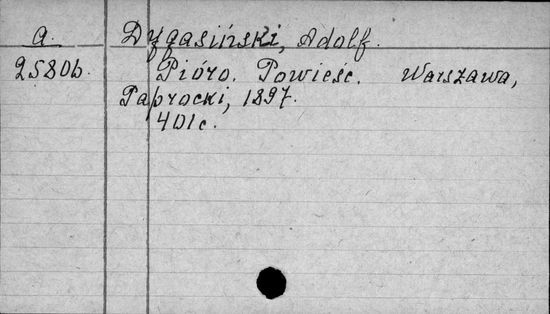 a. Dygasiński, Adolf.
25806. Pióro. Powieść. Warszawa,
Paprocki, 1897.
401c.